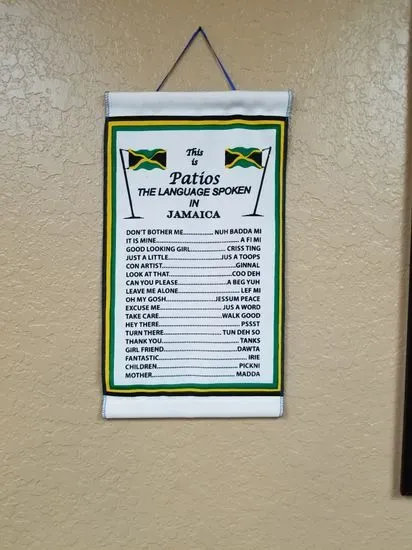 This
is
Patios
THE LANGUAGE SPOKEN
IN
JAMAICA
DON'T BOTHER ME............... NUH BADDA MI
IT IS MINE.......................................... A FI MI
GOOD LOOKING GIRL................ CRISS TING
JUST A LITTLE..........................JUS A TOOPS
CON ARTIST...................................GINNAL
LOOK AT THAT..............................COO DEH
CAN YOU PLEASE.......................A BEG YUH
LEAVE ME ALONE............................LEF MI
OH MY GOSH.......................JESSUM PEACE
EXCUSE ME.............................JUS A WORD
TAKE CARE.............................WALK GOOD
HEY THERE........................................PSSST
TURN THERE........................... TUN DEH SO
THANK YOU.......................................TANKS
GIRL FRIEND....................................DAWTA
FANTASTIC.......................................... IRIE
CHILDREN.........................................PICKNI
MOTHER......................................... MADDA